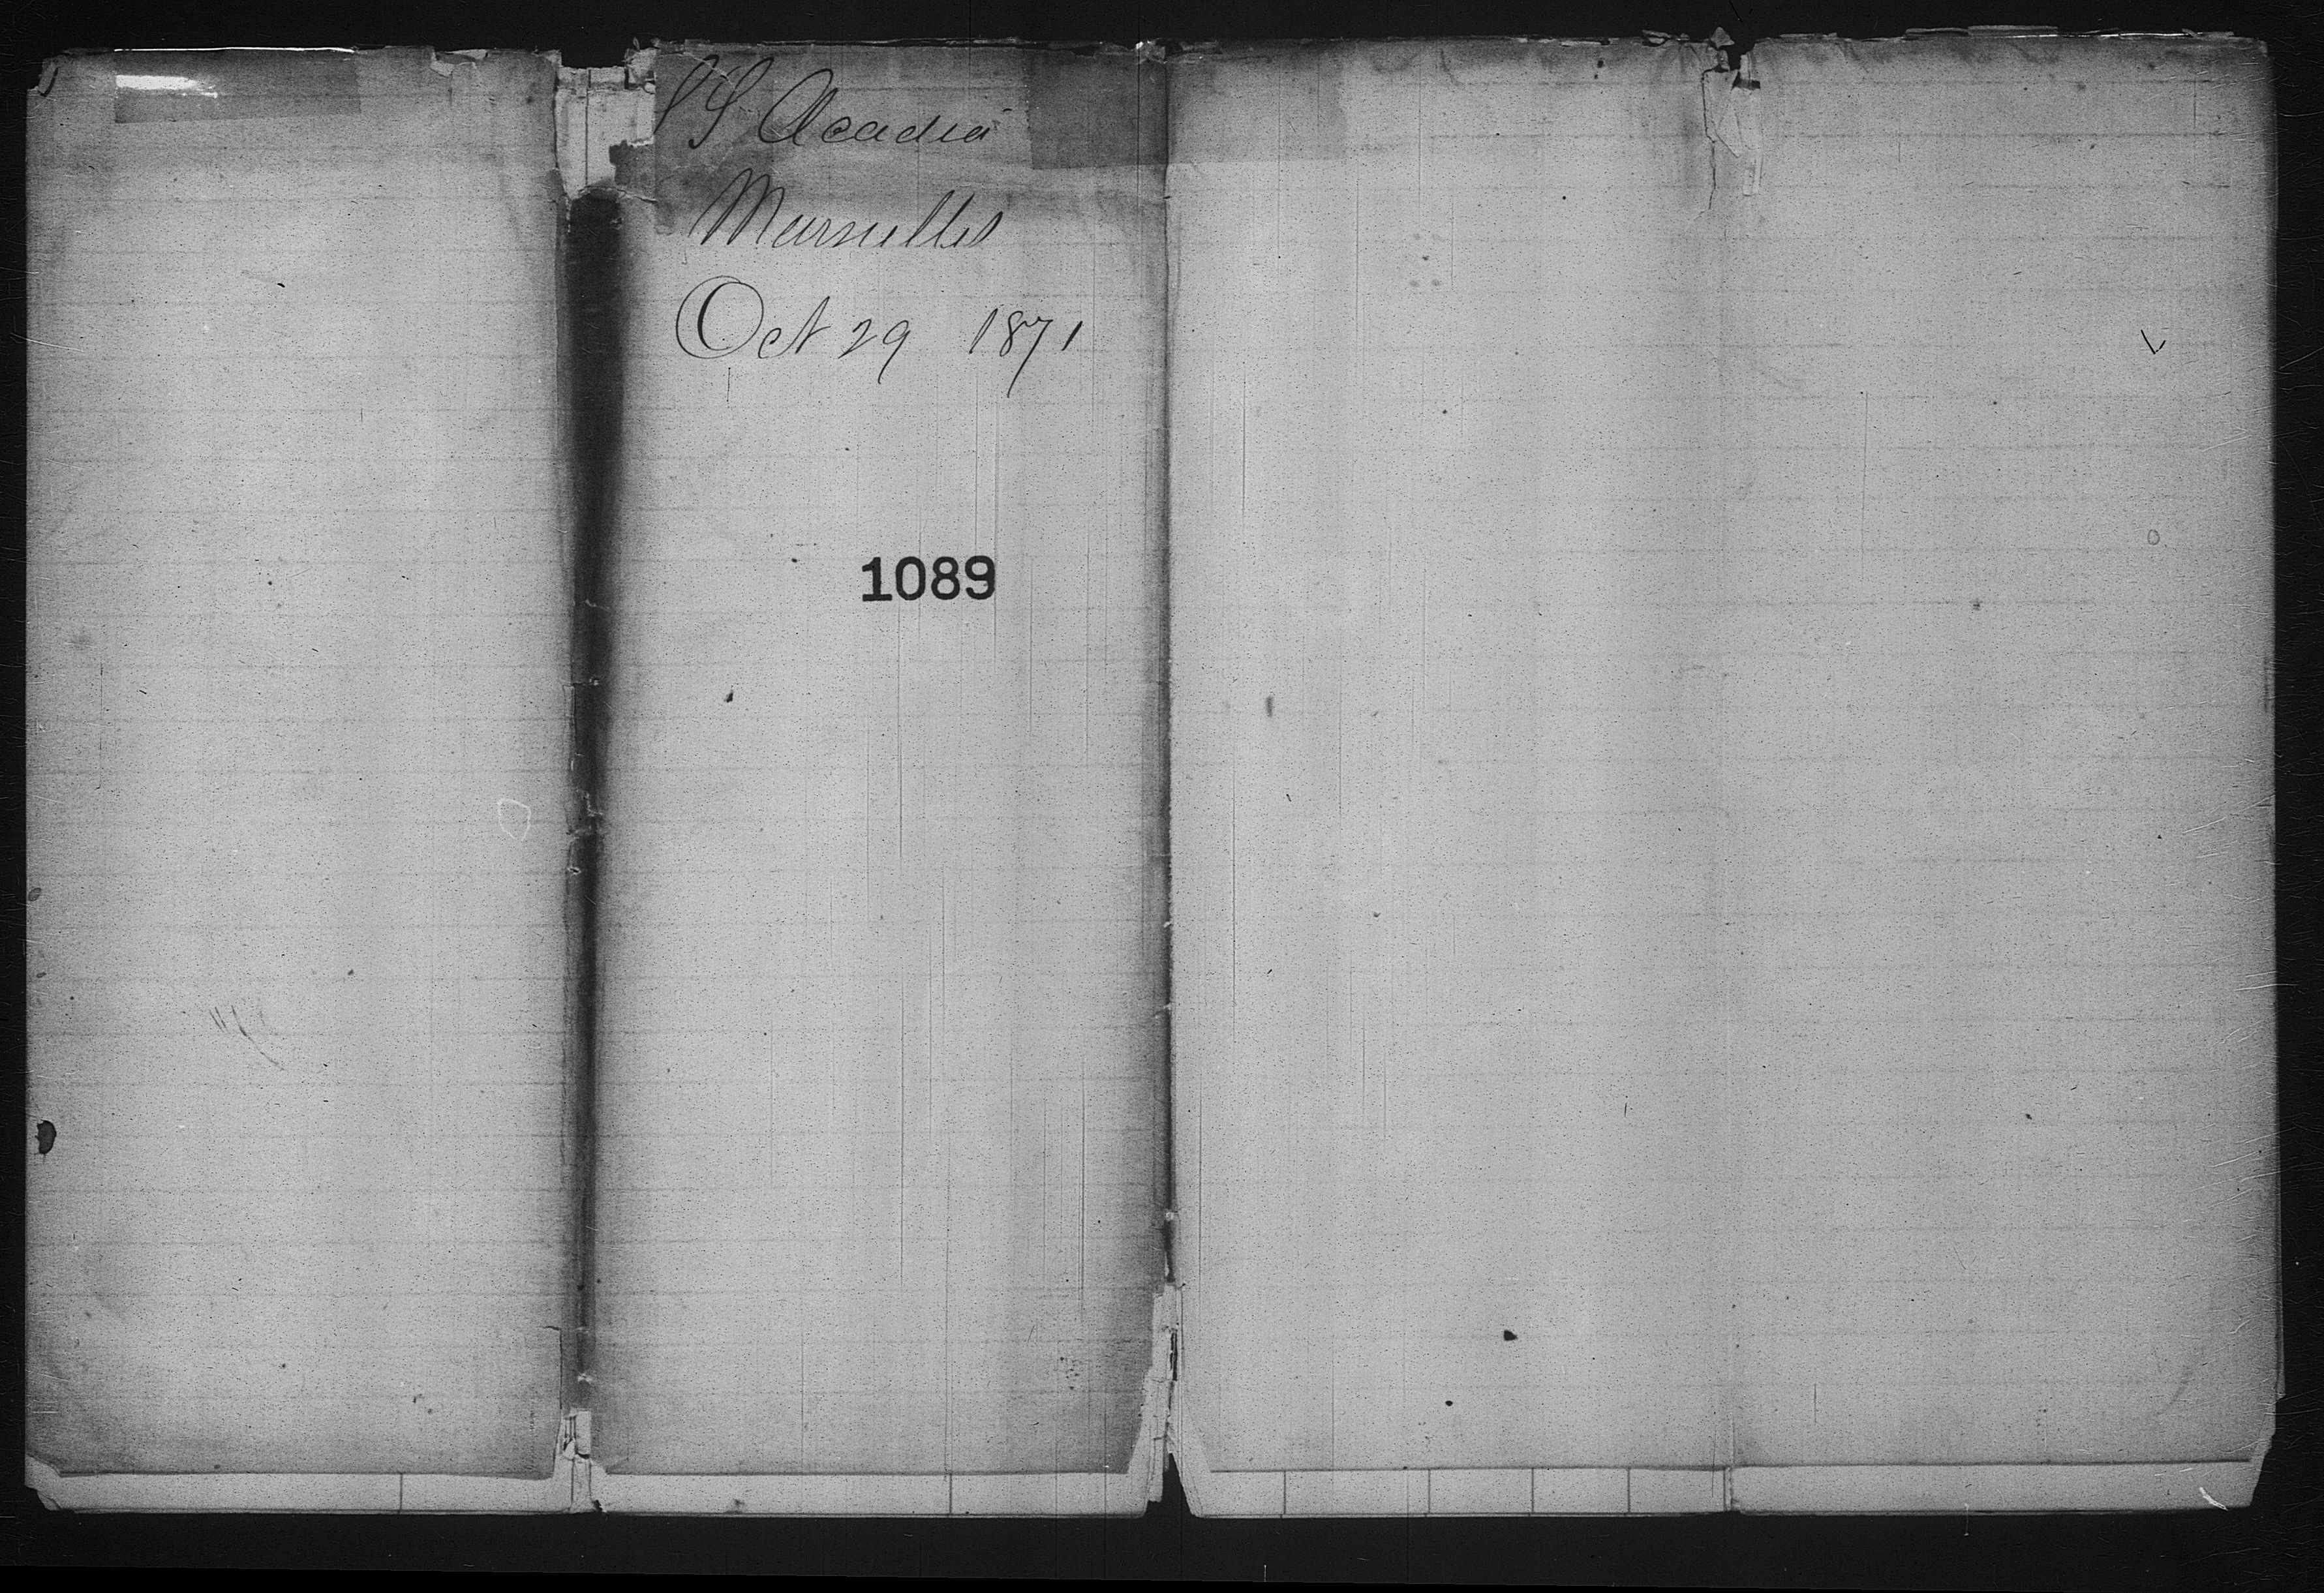 SS Acadia
Marseilles
Oct 29 1871
1089